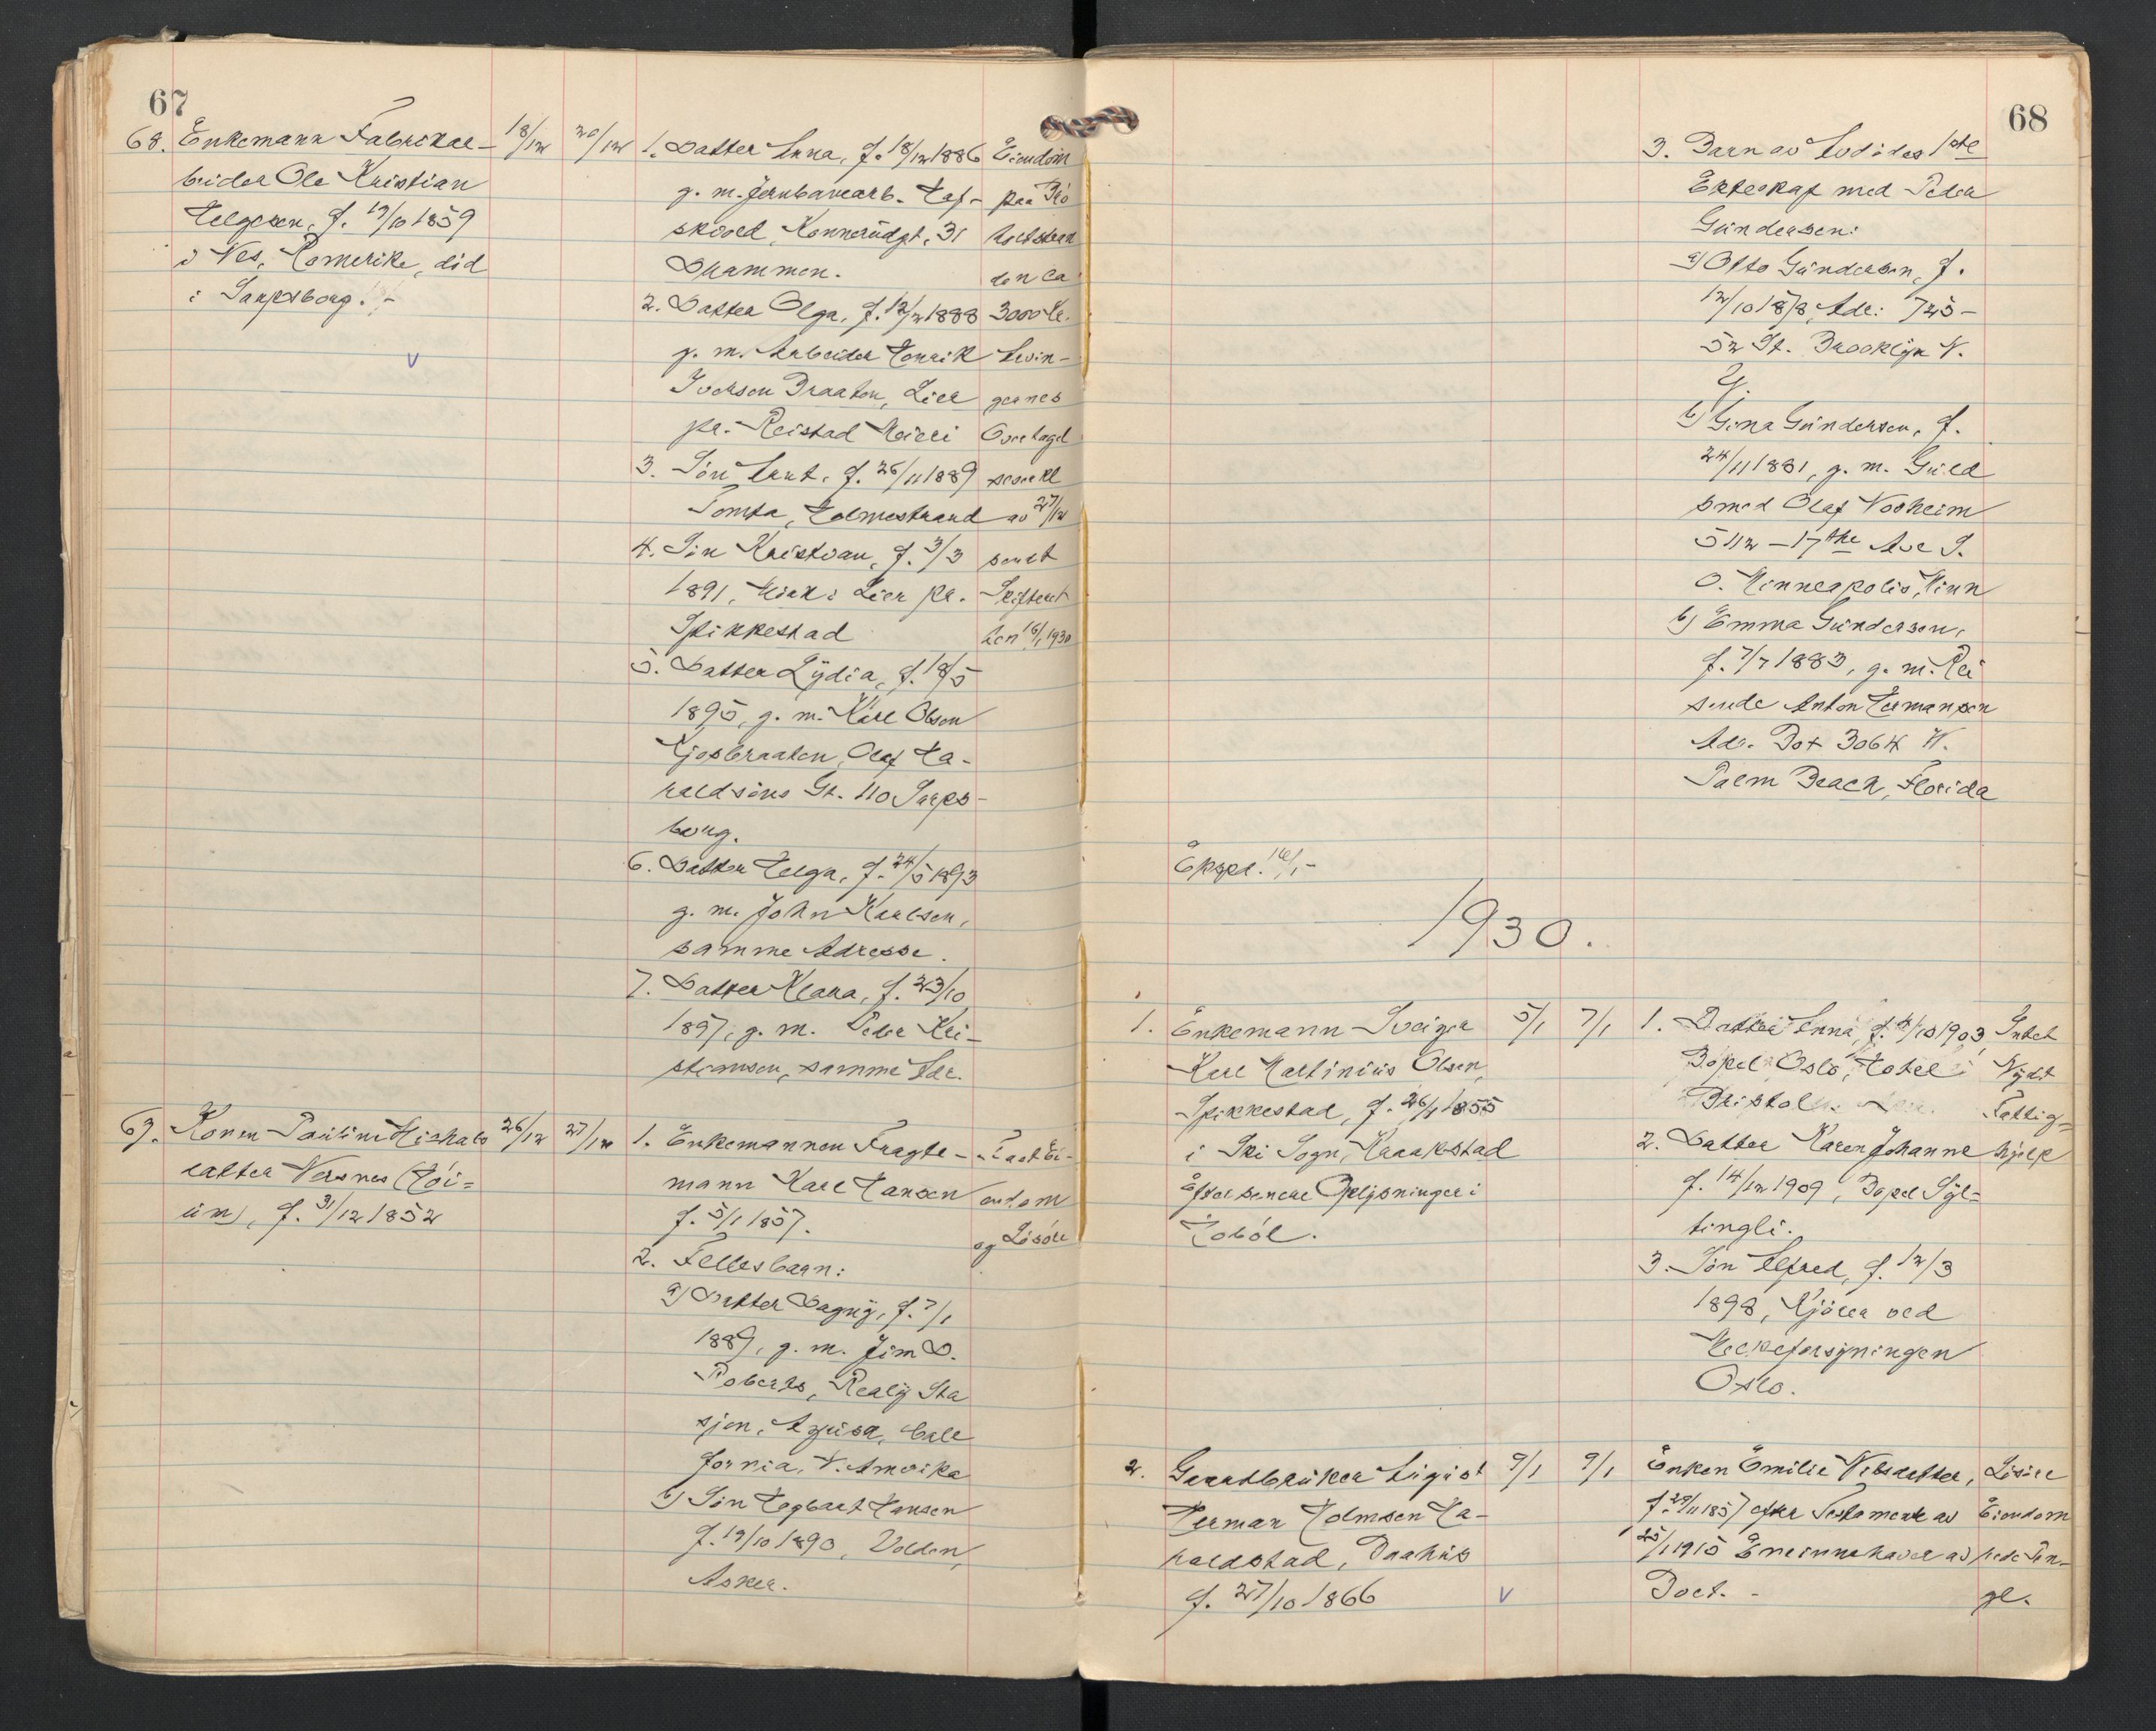 67
68. Enkemann Fabrikar-
beider Ole Kristian
Helgesen, f. 19/10 1859
i Nes, Romerike, død
i Sarpsborg. -
18/12
20/12
1. Datter Anna, f. 18/12 1886
g. m. Jernbanearb. Haf-
skjold, Konnerudgt. 31
Drammen.
2. Datter Olga, f. 12/2 1888
g. m. Arbeider Henrik
Iversen Braaten, Lier
pr. Reistad Meieri
3. Søn Arnt, f. 26/11 1889
Tomta, Holmestrand
4. Søn Kristian, f. 3/3
1891, Lier pr.
Spikkestad
5. Datter Lydia, f. 18/5
1895, g. m. Kåre Olsen
Kjosbraaten, Olaf Ha-
raldsøns Gt. 110 Sarps-
borg.
6. Datter Helga, f. 24/5 1893
g. m. John Karlsen,
samme Adresse.
7. Datter Klara, f. 23/10
1897, g. m. Peder Kri-
stiansen, samme Adr.
Eiendom
paa
den ca
3000 Kr.
Arvin-
gernes
Overtagel
seserkl
av 27/12
sendt
Skifteret
ten 16/1 1930
69. Konen Pauline Mikals
datter Versnes (Høi-
um), f. 31/12 1852
26/12
27/12
1. Enkemannen Fragte-
mann Karl Hansen
f. 5/1 1857.
2. Fellesbarn:
a) Datter Dagny, f. 7/1
1887, g. m. Jim D.
Roberts, Realy Sta
sjon, Agusa, Cali
fornia, N. Amerika
b) Søn Hegbart Hansen
f. 19/10 1890, Volden,
Asker.
Fast Ei-
endom
og Løsøre
68
3. Barn av Avdødes 1ste
Ekteskap med Peder
Gundersen:
a) Otto Gundersen, f.
12/10 1878, Adr: 725-
52 St. Brooklyn N.
Y.
b) Gina Gundersen, f.
24/11 1881, g. m. Guld
smed Olaf Nosheim
5112 - 17the Ave S.
O. Minneapolis, Minn
b) Emma Gundersen,
f. 7/7 1883, g. m. Rei
sende Anton Hermansen
Adr. Box 3064 W.
Palm Beach, Florida
Ekspd. 16/1 -
1930.
1. Enkemann Sveiger
Karl Martinius Olsen,
Spikkestad, f. 26/1 1855
i Ski Sogn, Kraakstad
Efter senere Oplysninger i
Hobøl.
5/1
7/1
1. Datter Anna, f. 4/10 1903,
Bopel Oslo, Hotel
Bristol
2. Datter Karen Johanne
f. 14/12 1909, Bopel Syl-
tingli.
3. Søn Alfred, f. 12/3
1898, Kjører ved
Melkeforsyningen
Oslo.
Intet
Nydt
Fattig-
hjelp
2. Gaardbruker August
Herman Holmsen Ha-
raldstad, Baahus
f. 27/10 1866
9/1
9/1
Enken Emilie Nilsdatter,
f. 29/11 1857 efter Testamente av
25/1 1915 Eneinnehaver av
Boet. -
Løsøre
Eiendom